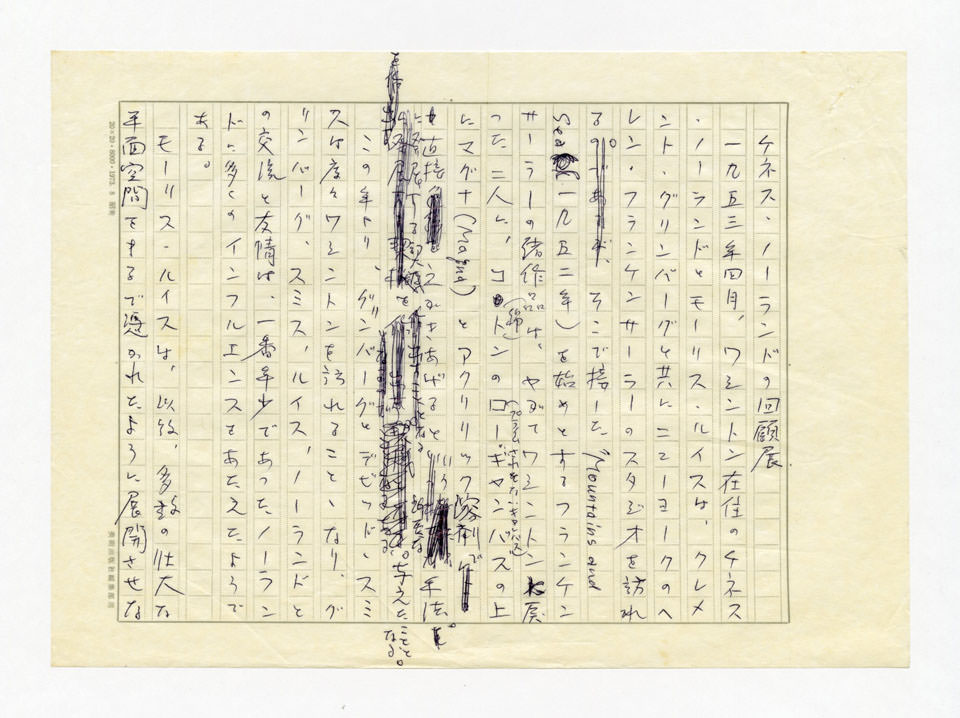 ケネス・ノーランドの回顧展
一九五三年四月、ワシントン在住のケネス
・ノーランドとモーリス・ルイスは、クレメ
ント・グリンバーグと共にニューヨークのヘ
レン・フランケンサーラーのスタジオを訪れ
る。そこで接した、"Mountains and
Sea (一九五二年)を始めとするフランケン
サーラーの諸作品は、やがてワシントンへ戻
った二人に、コットン(綿)のローキャンバスの上
にマグナ(Magna)とアクリリック溶剤で
直接
手法を。
与えたことと
なる。
この年より、グリンバーグとデビッド・スミ
スは度々ワシントンを訪れることゝなり、グ
リンバーグ、スミス、ルイス、ノーランドと
の交流と友情は、一番年少であったノーラン
ドに多くのインフルエンスをあたえたようで
ある。
モーリス・ルイスは、以後、多数の壮大な
平面空間をまるで憑かれたように展開させな
20×20・8000・1973. 8